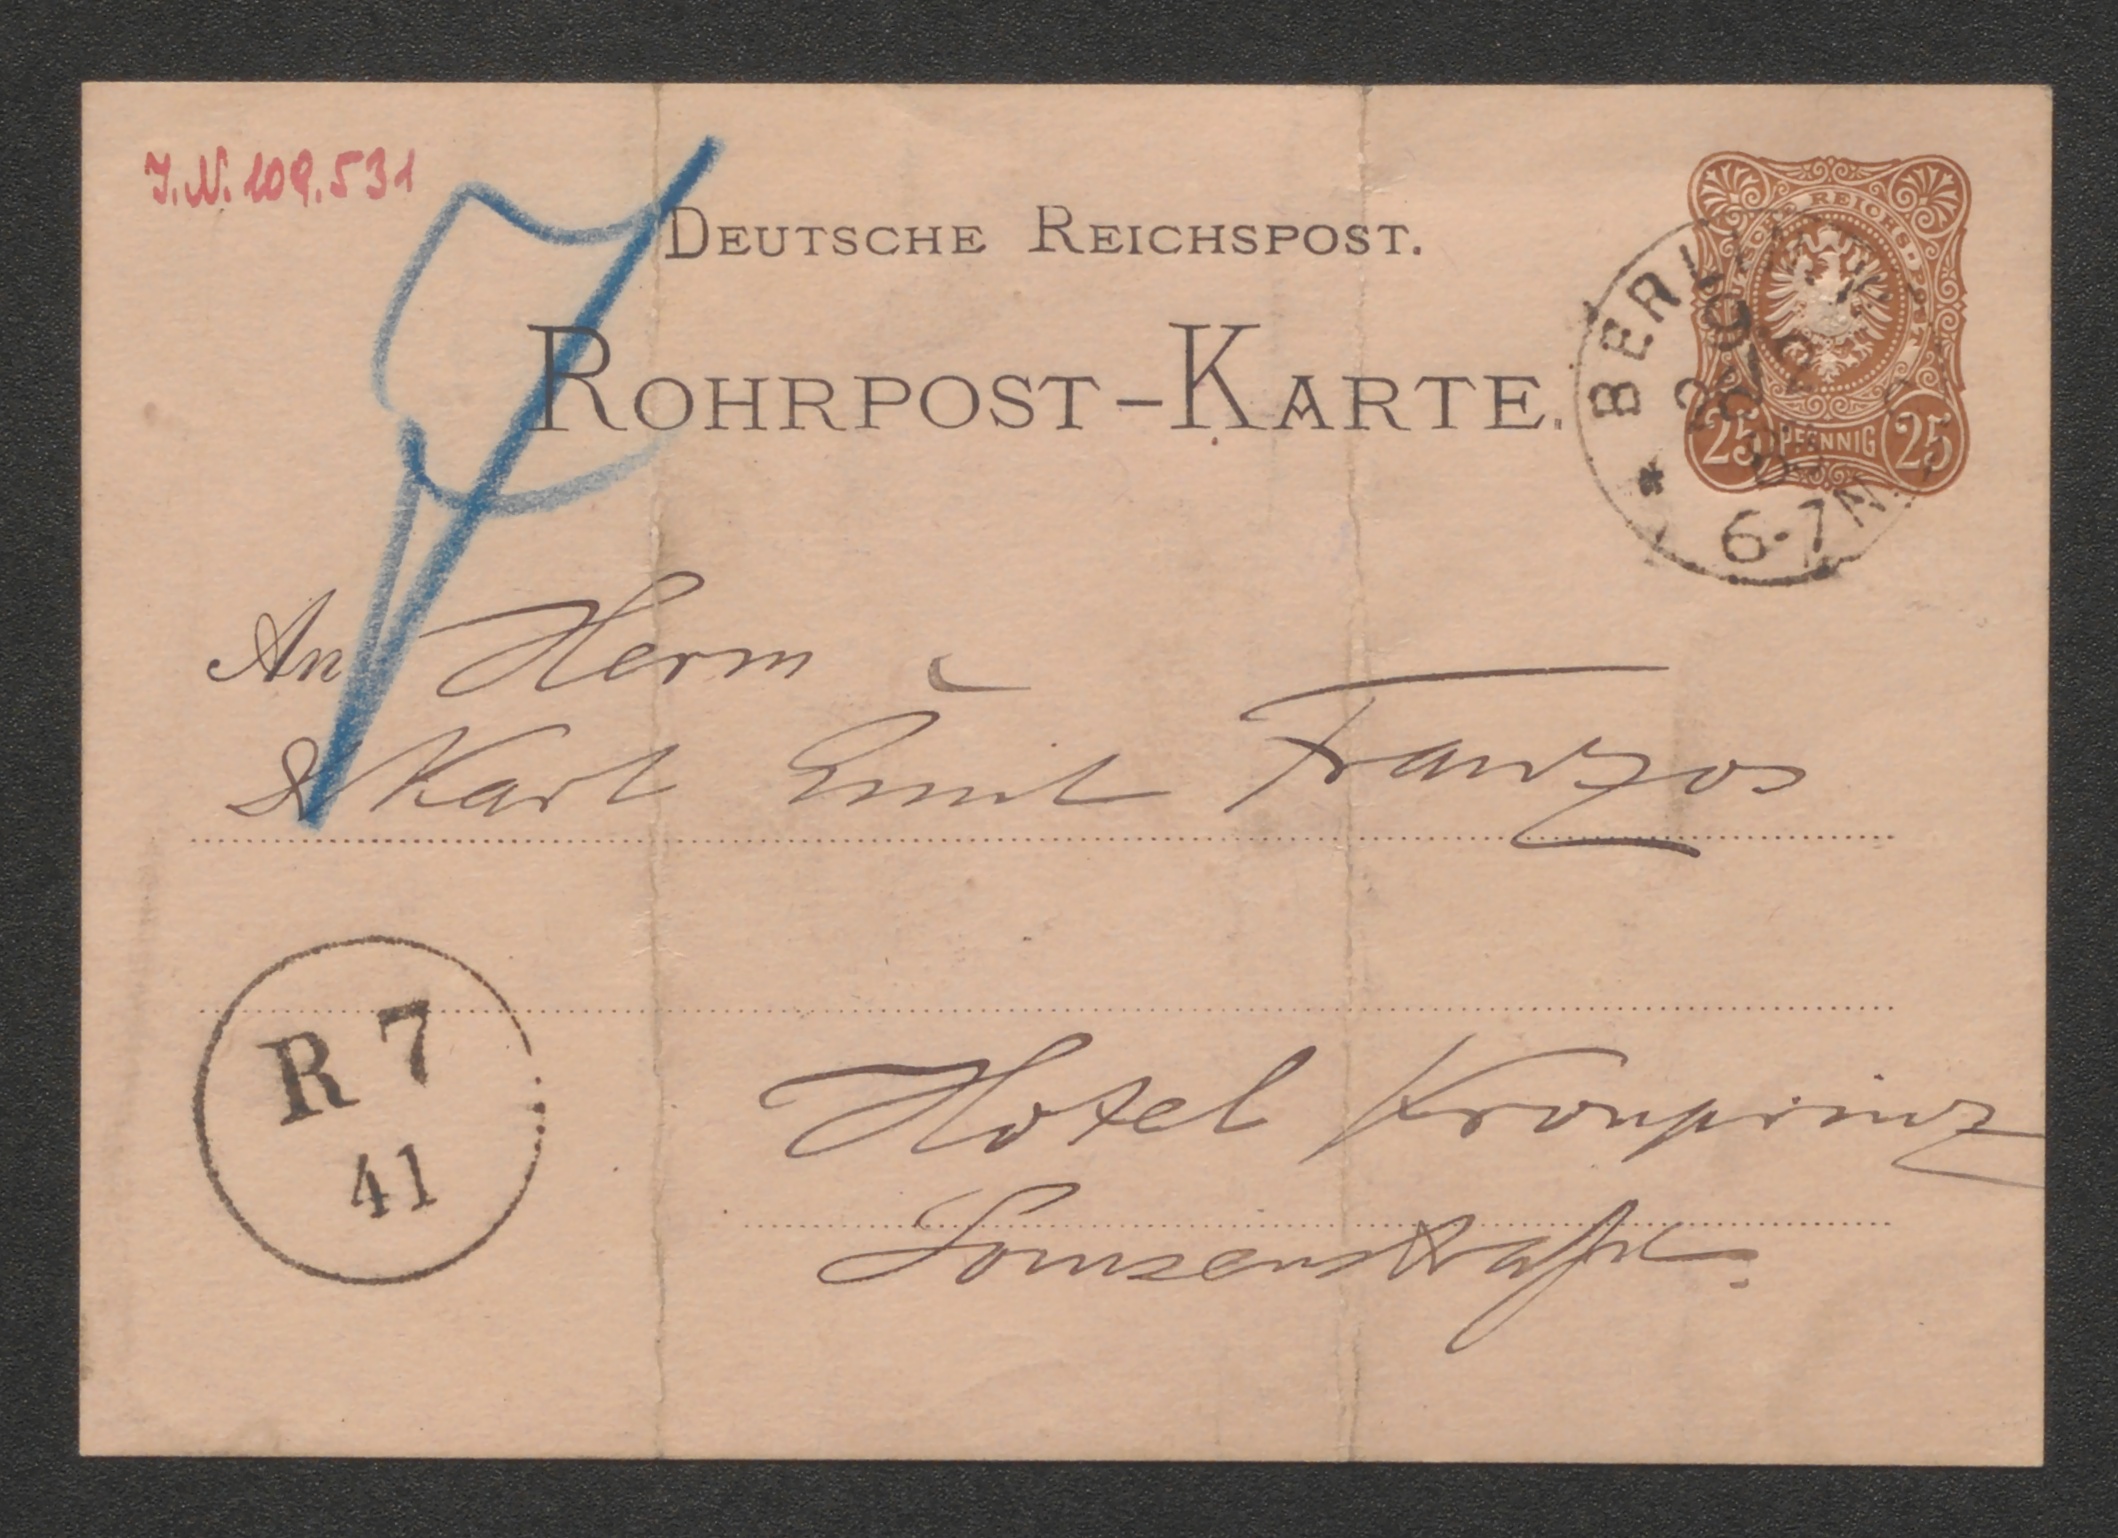 J.N. 109.531
DEUTSCHE REICHSPOST.
ROHRPOST-KARTE.
DEUTSCHE REICHSPOST
25 PFENNIG 25
BERLIN
6-7N
An Herrn
Dr Karl Emil Franzos
R 7
41
Hotel Kronprinz
Louisenstraße.